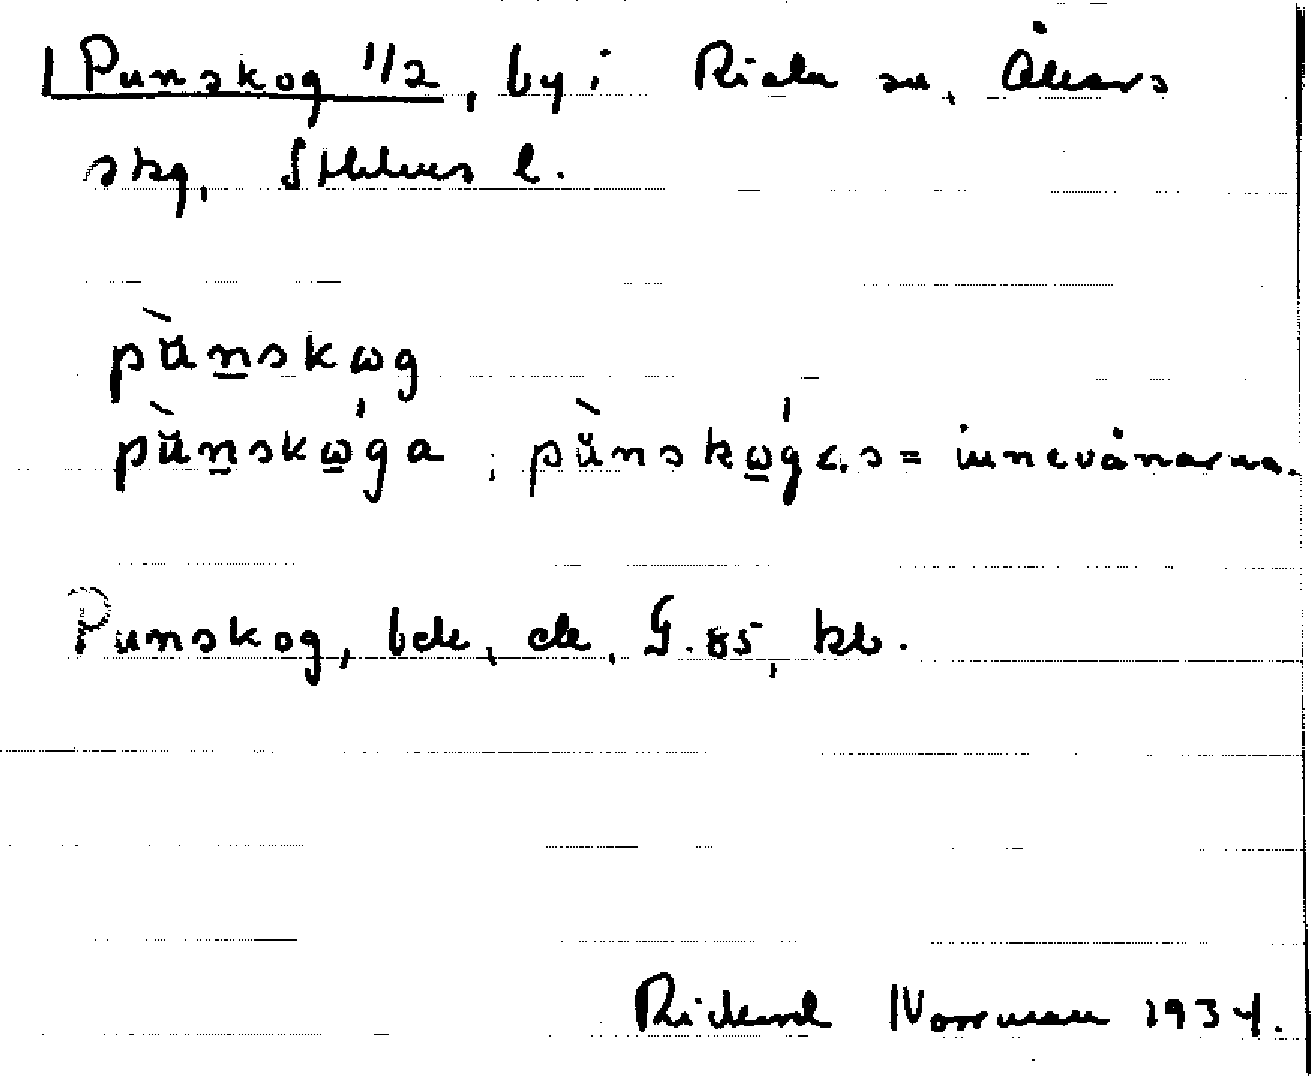 Punskog 1/2, by i Riala sn, Åkers
skg, Sthlms l.
pù̆n̲skωg
pù̆n̲skώ̲ga, pù̆nskώ̲gas = innevånarna.
Punskog, bde, de, G. 85, kb.
Rickard Norrman 1934.